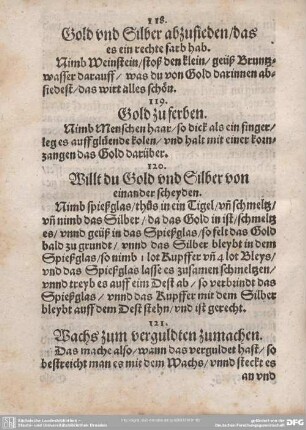 118.
Gold vnd Silber abzusieden/das
es ein rechte farb hab.
Nimb Weinstein/stoß den klein/ geüß Bruntz-
wasser darauff/ was du von Gold darinnen ab-
siedest/das wirt alles schön.
119.
Gold zu ferben.
Nimb Menschen haar/so dick als ein finger/
leg es auff glüende kolen/ vnd halt mit einer korn-
zangen das Gold darüber.
120.
Willt du Gold vnd Silber von
einander scheyden.
Nimb spießglas/thůs in ein Tigel/ vñ schmeltz/
vñ nimb das Silber/ da das Gold in ist/schmeltz
es/ vnnd geüß in das Spießglas/so felt das Gold
bald zu grundt/ vnnd das Silber bleybt in dem
Spießglas/so nimb 1 lot Kupffer vñ 4 lot Bleys/
vnd das Spießglas lasse es zusamen schmeltzen/
vnnd treyb es auff eim Test ab/ so verbrindt das
Spießglas/ vnnd das Kupffer mit dem Silber
bleybt auff dem Test stehn/vnd ist gerecht.
121.
Wachs zum verguldten zumachen.
Das mache also/wann das verguldet hast/ so
bestreicht man es mit dem Wachs/ vnnd steckt es
an vnd